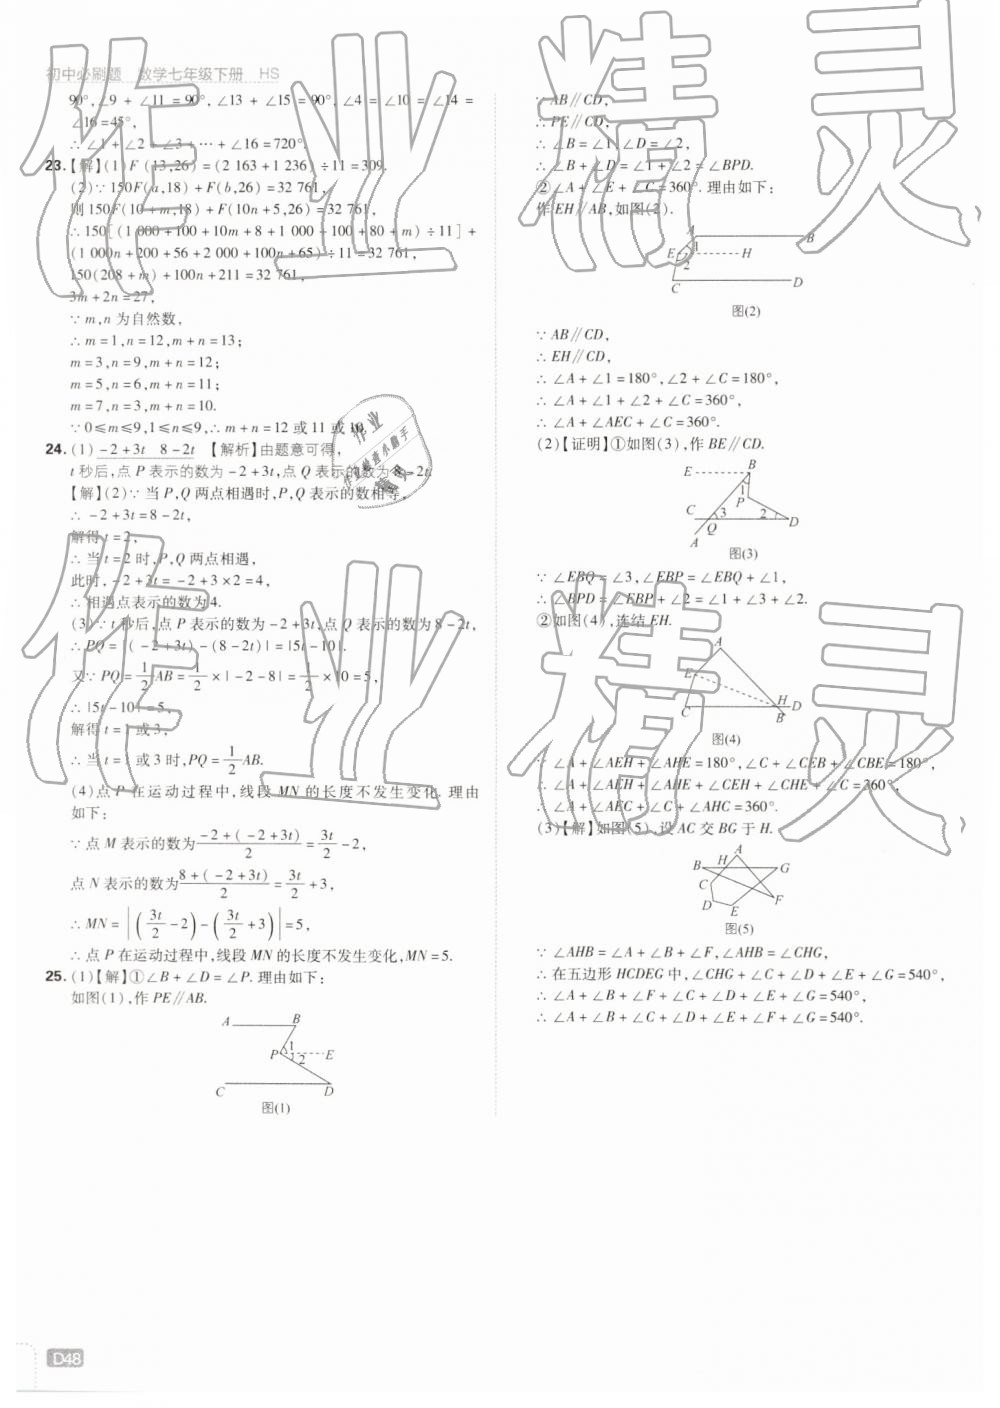 初中必刷题 数学七年级下册 HS
90°,∠9 + ∠11 = 90°,∠13 + ∠15 = 90°,∠4 = ∠10 = ∠14 =
∠16=45°,
∴ ∠1 + ∠2 + ∠3 + ⋯ + ∠16 = 720°.
23.【解】(1) F (13,26) = (2 163 + 1 236) ÷ 11 = 309.
(2)∵ 150F(a,18) + F(b,26) = 32 761,
则 150F(10 + m,18) + F(10n + 5,26) = 32 761,
∴ 150[(1 000 + 100 + 10m + 8 + 1 000 + 100 + 80 + m) ÷ 11] +
(1 000n + 200 + 56 + 2 000 + 100n + 65) ÷ 11 = 32 761,
150(208 + m) + 100n + 211 = 32 761,
3m + 2n = 27,
∵ m,n 为自然数,
∴ m = 1,n = 12,m + n = 13;
m = 3,n = 9,m + n = 12;
m = 5,n = 6,m + n = 11;
m = 7,n = 3,m + n = 10.
∵ 0≤m≤9,1≤n≤9,∴ m + n = 12 或 11 或 10.
24. (1) -2+3t 8-2t 【解析】由题意可得,
t 秒后,点 P 表示的数为 -2+3t,点 Q 表示的数为 8-2t.
【解】(2)∵ 当 P,Q 两点相遇时,P,Q 表示的数相等,
∴ -2+3t=8-2t,
解得 t=2,
∴ 当 t=2 时,P,Q 两点相遇,
此时,-2+3t=-2+3×2=4,
∴ 相遇点表示的数为 4.
(3)∵ t 秒后,点 P 表示的数为 -2+3t,点 Q 表示的数为 8-2t,
∴ PQ=|(-2+3t)-(8-2t)|=|5t-10|.
又∵ PQ=1/2 AB=1/2×|-2-8|=1/2×10=5,
∴ |5t-10|=5,
解得 t=1 或 3,
∴ 当 t=1 或 3 时,PQ=1/2 AB.
(4)点 P 在运动过程中,线段 MN 的长度不发生变化. 理由
如下:
∵ 点 M 表示的数为 (-2+(-2+3t))/2 = 3t/2 - 2,
点 N 表示的数为 (8+(-2+3t))/2 = 3t/2 + 3,
∴ MN = |(3t/2 - 2) - (3t/2 + 3)| = 5,
∴ 点 P 在运动过程中,线段 MN 的长度不发生变化,MN=5.
25. (1)【解】①∠B + ∠D = ∠P. 理由如下:
如图(1),作 PE∥AB.
A B
P 1 2 E
C D
图(1)
D48
∵ AB∥CD,
∴ PE∥CD,
∴ ∠B = ∠1,∠D = ∠2,
∴ ∠B + ∠D = ∠1 + ∠2 = ∠BPD.
②∠A + ∠E + ∠C = 360°. 理由如下:
作 EH∥AB,如图(2).
A B
E 1 2 H
C D
图(2)
∵ AB∥CD,
∴ EH∥CD,
∴ ∠A + ∠1 = 180°,∠2 + ∠C = 180°,
∴ ∠A + ∠1 + ∠2 + ∠C = 360°,
∴ ∠A + ∠AEC + ∠C = 360°.
(2)【证明】①如图(3),作 BE∥CD.
E B
1
P
C 3 2 D
Q
A
图(3)
∵ ∠EBQ = ∠3,∠EBP = ∠EBQ + ∠1,
∴ ∠BPD = ∠EBP + ∠2 = ∠1 + ∠3 + ∠2.
②如图(4),连结 EH.
A
E
H
C D
B
图(4)
∵ ∠A + ∠AEH + ∠AHE = 180°,∠C + ∠CEB + ∠CBE = 180°,
∴ ∠A + ∠AEH + ∠AHE + ∠CEH + ∠CHE + ∠C = 360°,
∴ ∠A + ∠AEC + ∠C + ∠AHC = 360°.
(3)【解】如图(5),设 AC 交 BG 于 H.
A
B H G
C
F
D E
图(5)
∵ ∠AHB = ∠A + ∠B + ∠F,∠AHB = ∠CHG,
∴ 在五边形 HCDEG 中,∠CHG + ∠C + ∠D + ∠E + ∠G = 540°,
∴ ∠A + ∠B + ∠F + ∠C + ∠D + ∠E + ∠G = 540°,
∴ ∠A + ∠B + ∠C + ∠D + ∠E + ∠F + ∠G = 540°.
作业精灵
作业精灵
作业
作业检查小助手
精灵